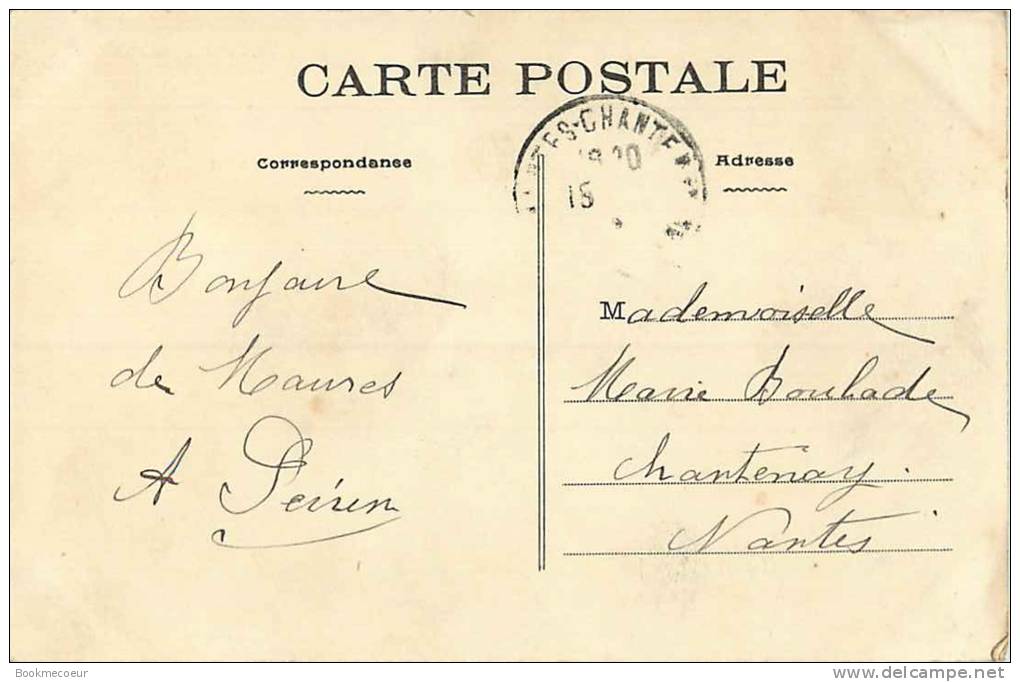 CARTE POSTALE
Correspondance
Adresse
NTES-CHANTEN
18
Bonjour
de Mauves
A
Mademoiselle
Marie Boulade
Chantenay.
Nantes
Bookmecoeur
delcampe.net